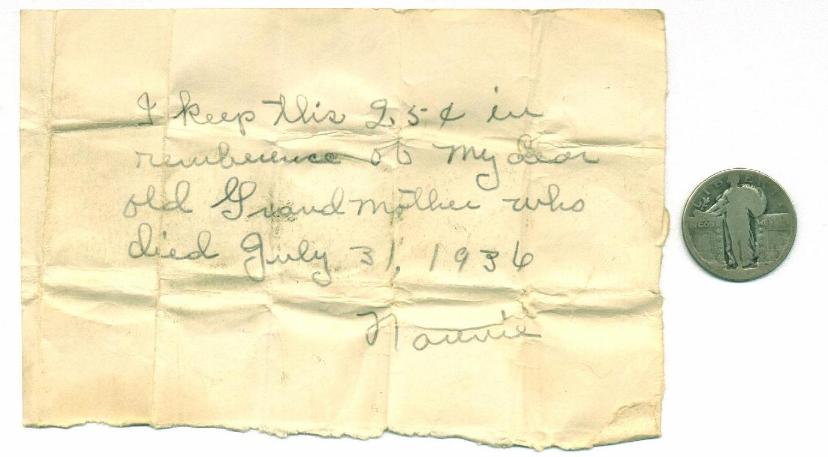 I keep this 25¢ in
remberence of my dear
old Grandmother who
died July 31, 1936
Nannie